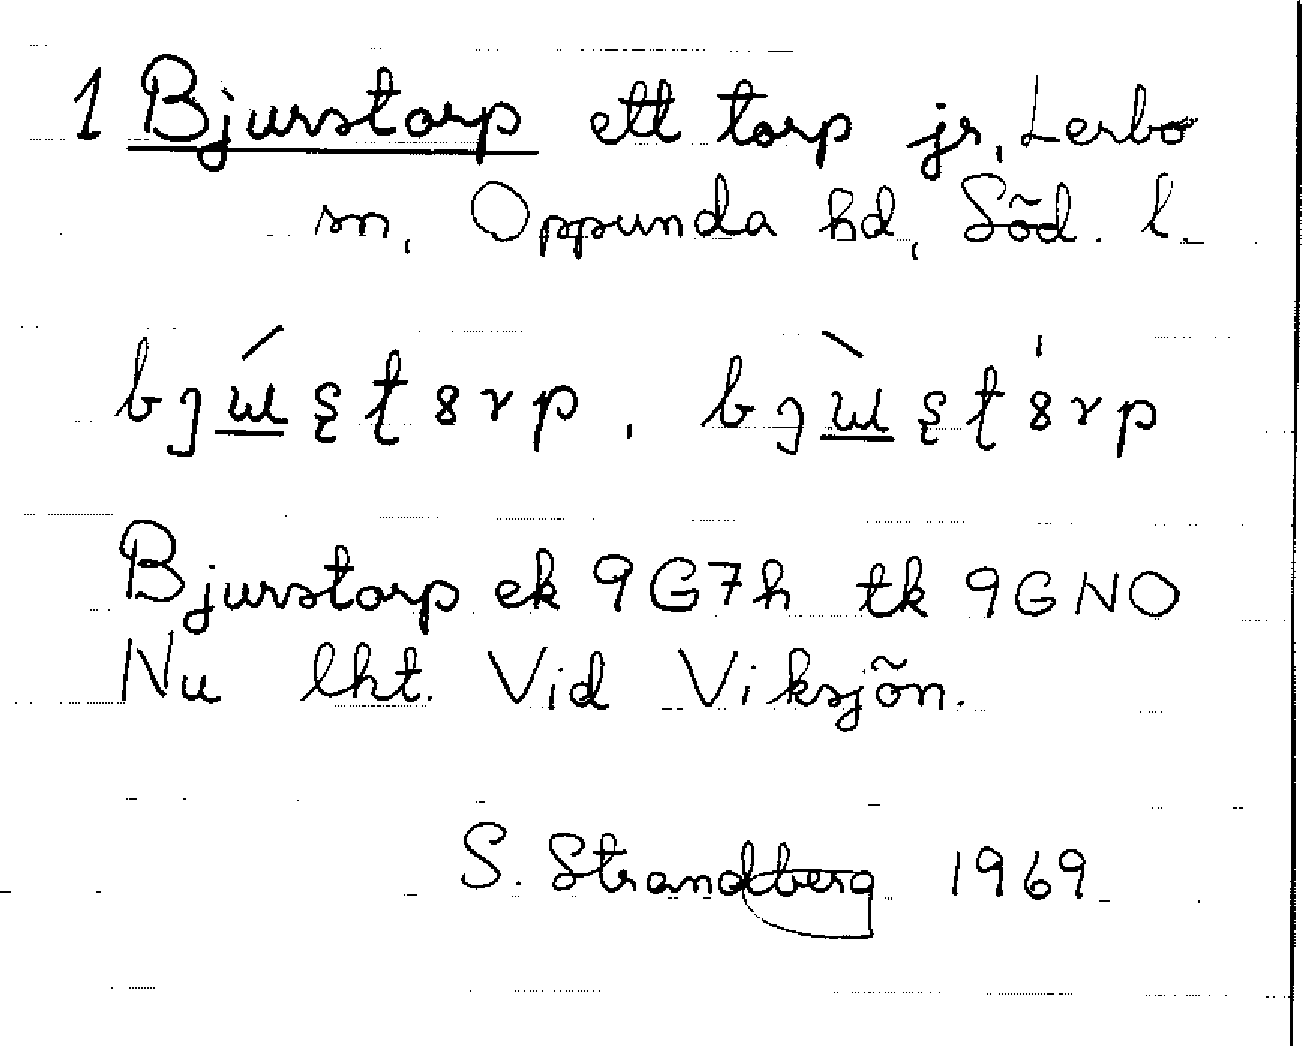 1 Bjurstorp ett torp jr, Lerbo
sn, Oppunda hd, Söd. l.
Bjurstorp ek 9G7h tk 9GNO
Nu lht. Vid Viksjön.
S. Strandberg 1969